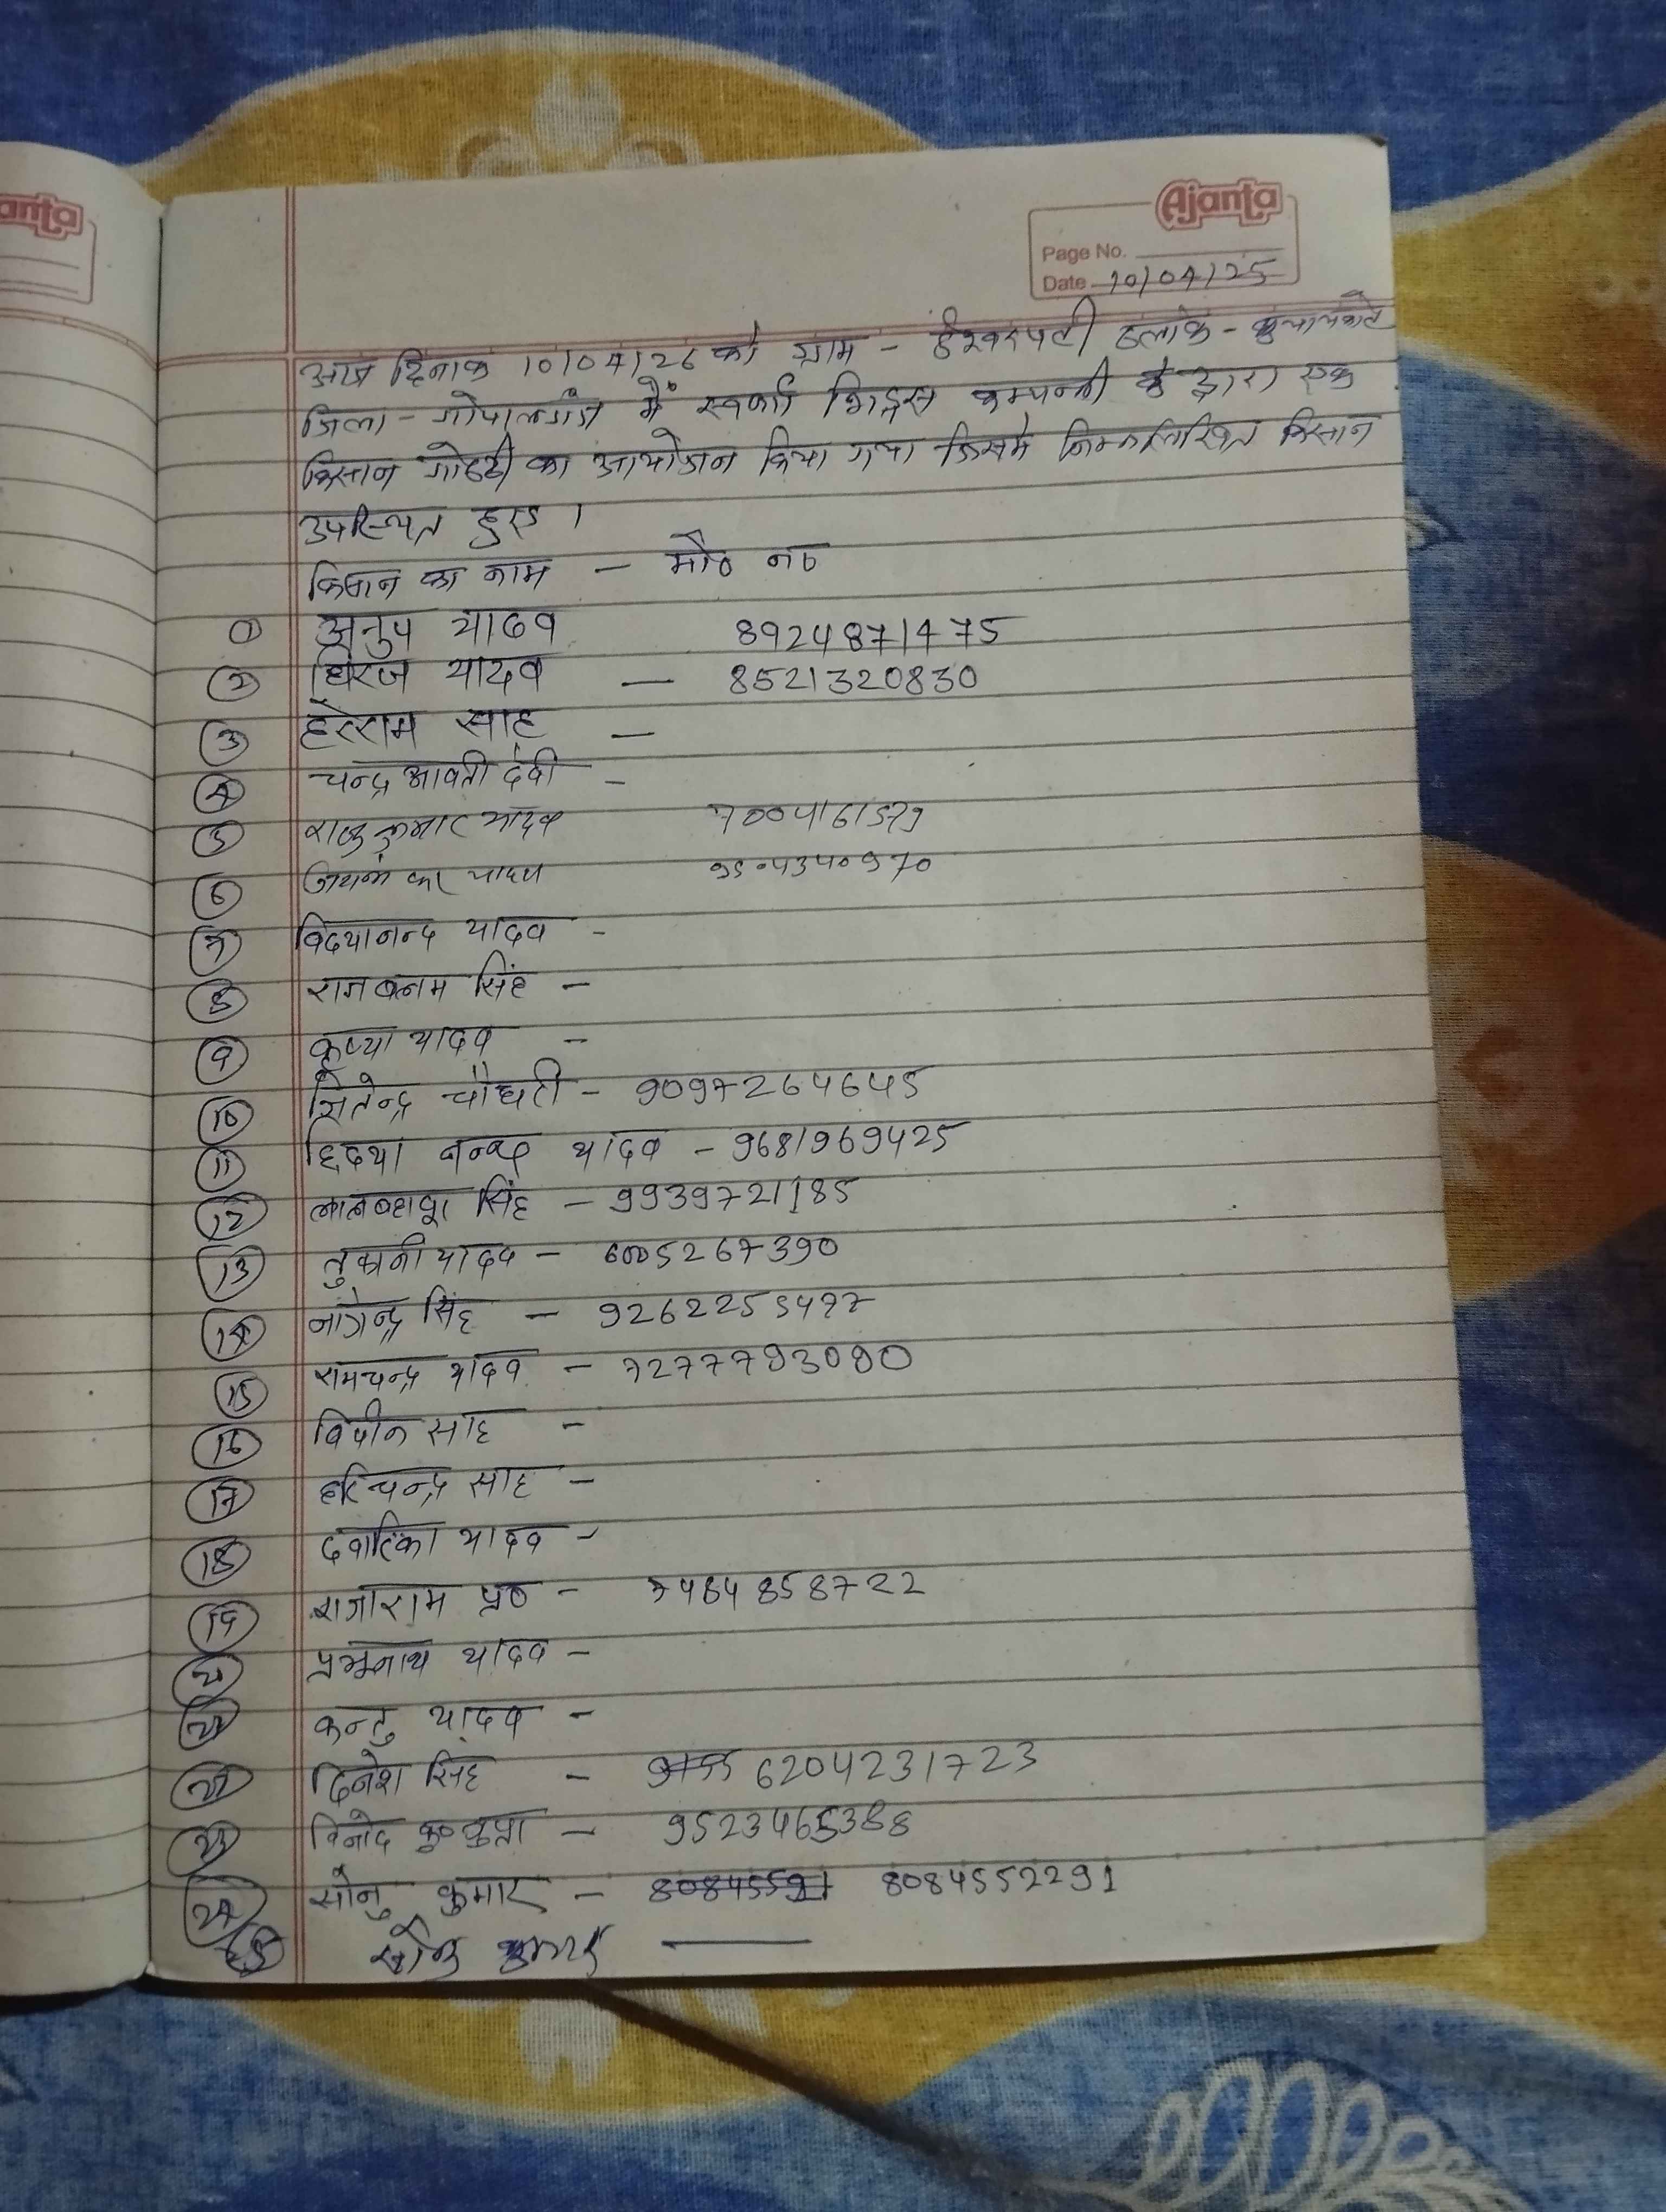 anta
Ajanta
Page No.
Date 10/04/25
आज दिनांक 10/04/26 को ग्राम - ईश्वरपटी ब्लाक - कुचायकोट
जिला - गोपालगंज में स्वर्णा फिड्स कम्पनी के द्वारा एक
किसान गोष्ठी का आयोजन किया गया जिसमे निम्नलिखित किसान
उपस्थित हुए ।
किसान का नाम - मो० न०
① अनुप यादव 8924871475
② धिरज यादव — 8521320830
③ हरेराम साह —
④ चन्द्रभावती देवी -
⑤ राजु कुमार यादव 7004161579
⑥ यादव 9504340970
⑦ विद्यानन्द यादव -
⑧ राजबलम सिंह -
⑨ कृष्णा यादव -
⑩ जितेन्द्र चौधरी - 9097264645
⑪ यादव - 9681969425
⑫ लालबहादूर सिंह - 9939721185
⑬ यादव -
⑭ नागेन्द्र सिंह -
⑮ रामचन्द्र यादव - 7277793090
⑯ विपीन साह -
⑰ हरिचन्द्र साह -
⑱ दवारिका यादव -
⑲ राजाराम प्र० - 7484858722
प्रभूनाथ यादव -
कन्तु यादव -
दिनेश सिंह - 6204231723
㉓ विनोद कु० - 9523465388
㉔ सोनु कुमार - 8084552291
सोनु कुमार —